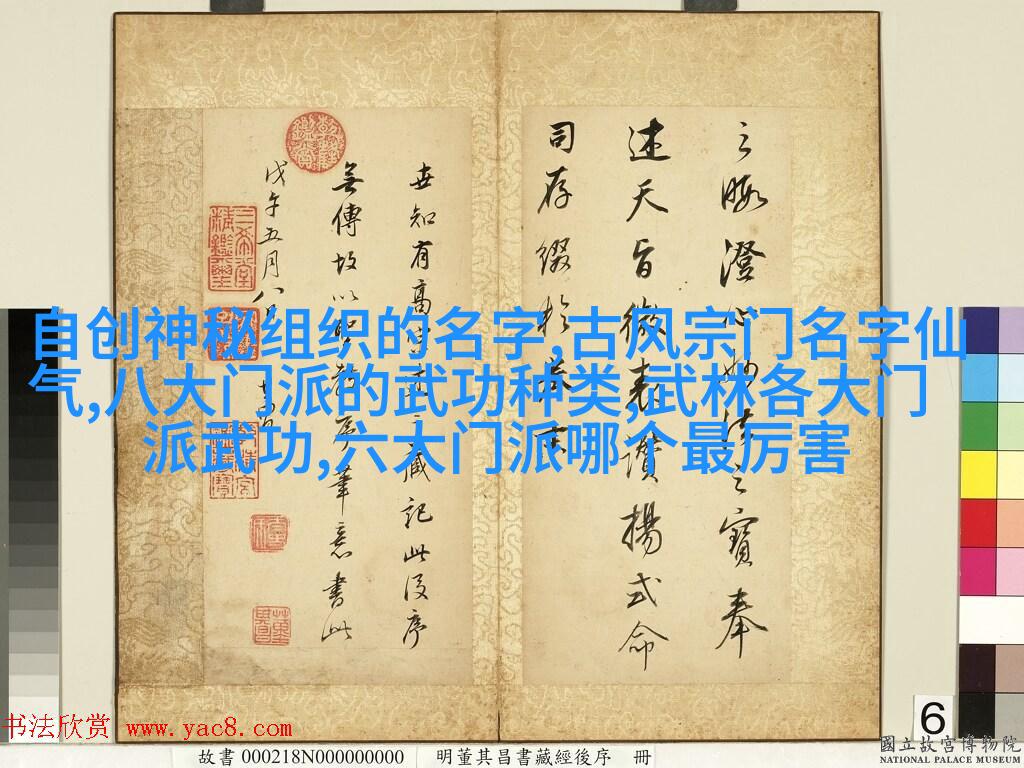 自创神秘组织的名字,古风宗门名字仙
气,八大门派的武功种类,武林各大门
派武功,六大门派哪个最厉害
之暇澄心妙法之寶奉
述天旨微表讚揚式命
司存綴於卷末
世知有高宗 藏記此後序
無傳故以聖教序筆意書此
戊午五月八日
三希堂精鑑璽
6
书法欣赏 www.yac8.com
故書 000218N000000000 明董其昌書藏經後序 冊
國立故宮博物院
NATIONAL PALACE MUSEUM